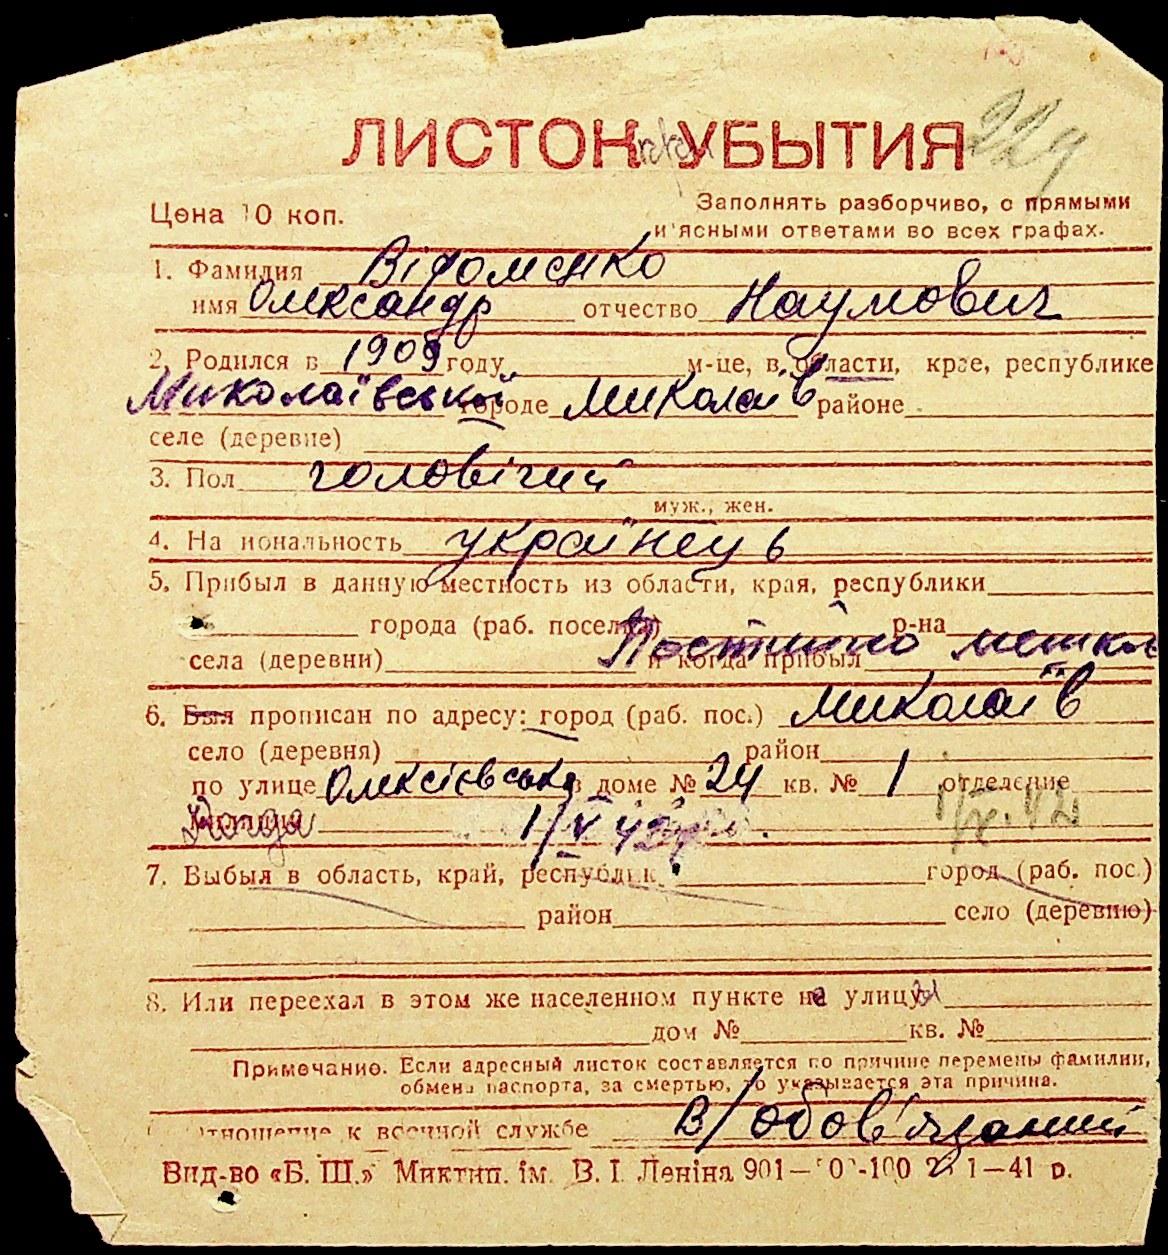 ЛИСТОК УБЫТИЯ 229
Цена 10 коп.
Заполнять разборчиво, с прямыми
и ясными ответами во всех графах.
1. Фамилия Відоменко
имя Олександр отчество Наумович
2. Родился в 1909 году м-це, в области, крае, республике
Миколаївській городе Миколаїв районе
селе (деревне)
3. Пол чоловічий
муж., жен.
4. На иональность українець
5. Прибыл в данную местность из области, края, республики
города (раб. поселка) р-на
села (деревни) и когда прибыл Постійно мешкає
6. Был прописан по адресу: город (раб. пос.) Миколаїв
село (деревня) район
по улице Олексієвська в доме № 24 кв. № 1 отделение
Когда 1/V 42 1/V.42
7. Выбыл в область, край, республик город (раб. пос.)
район село (деревню)
8. Или переехал в этом же населенном пункте на улицу
дом № кв. №
Примечание. Если адресный листок составляется по причине перемены фамилии,
обмена паспорта, за смертью, то указывается эта причина.
Отношение к военной службе В/обов'язаний
Вид-во «Б. Ш.» Миктип. ім. В. І. Леніна 901— 1—41 р.